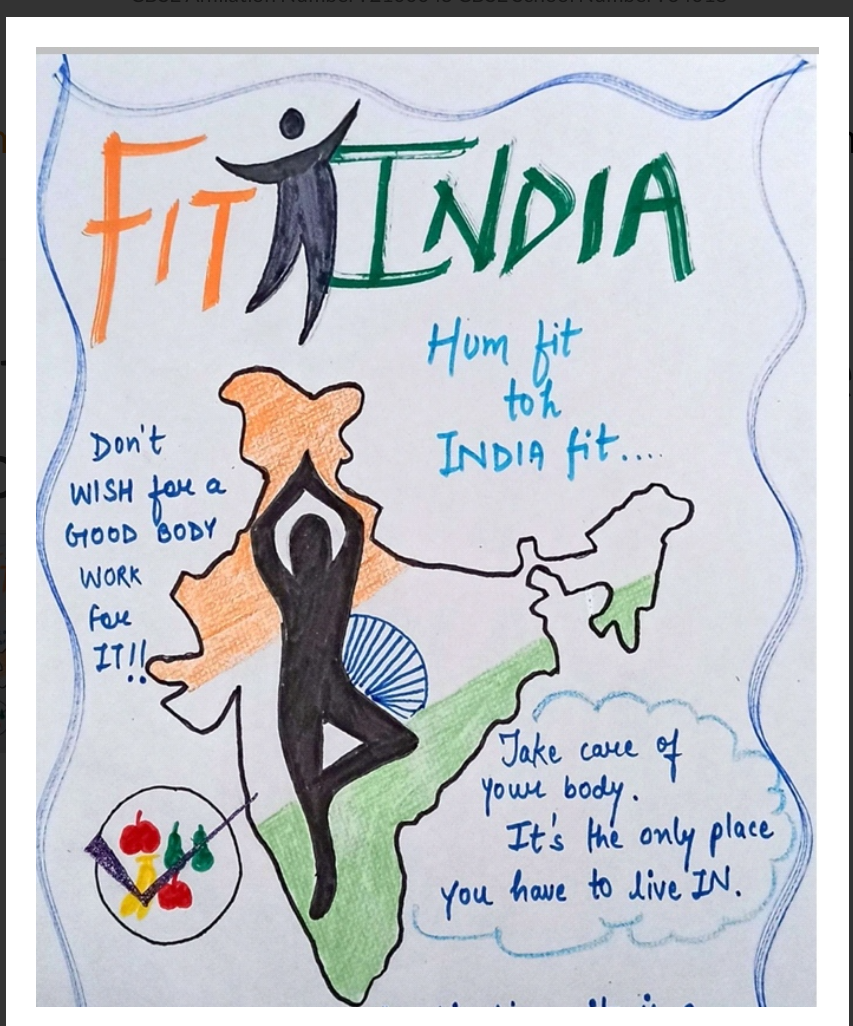 FIT INDIA
Hum fit
toh
INDIA fit....
Don't
WISH for a
GOOD BODY
WORK
for
IT!!
Take care of
your body.
It's the only place
you have to live IN.